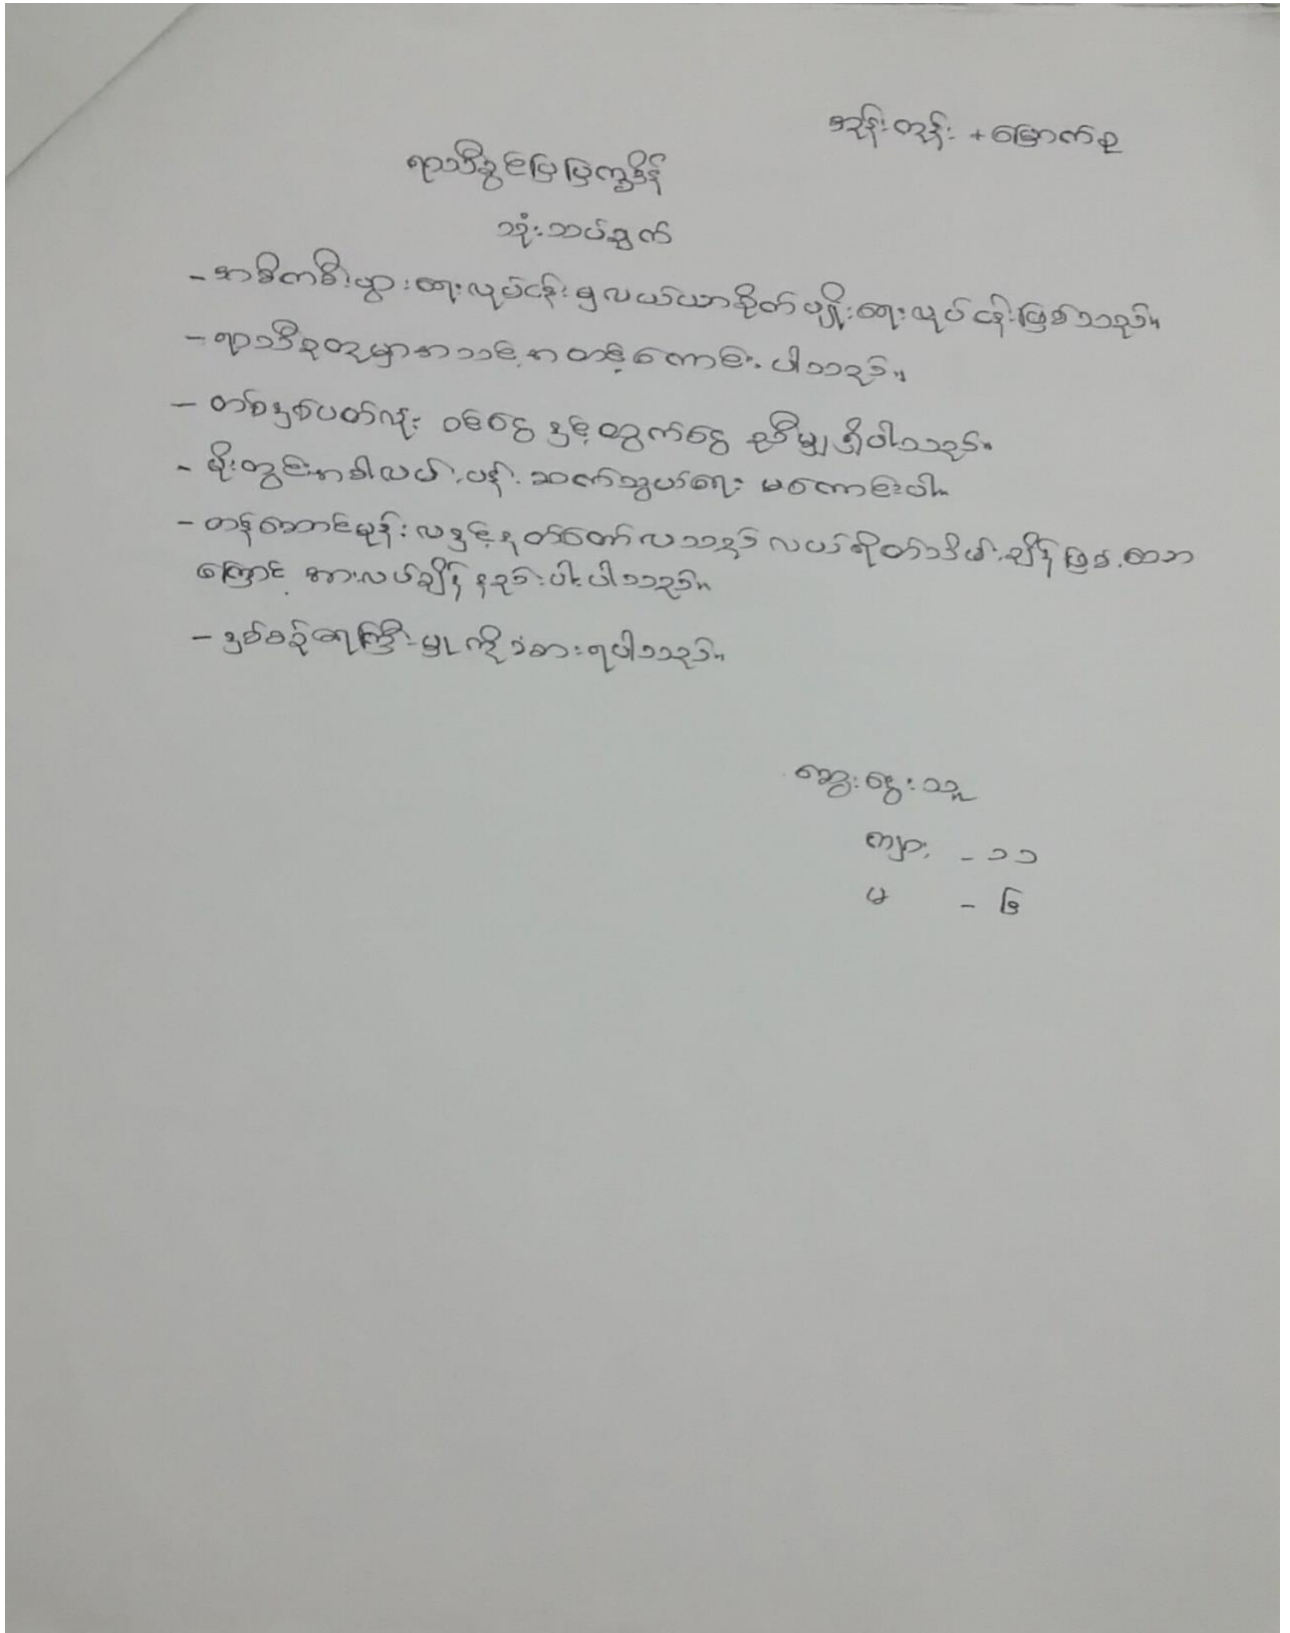 အုန်းတုန်း + မြောက်စု
ရာသီခွင်ပြပြက္ခဒိန်
သုံးသပ်ချက်
- အဓိကစီးပွားရေးလုပ်ငန်းမှလယ်ယာစိုက်ပျိုးရေးလုပ်ငန်းဖြစ်သည်။
- ရာသီဥတုမှာအသင့်အတင့်ကောင်းပါသည်။
- တစ်နှစ်ပတ်လုံး ဝင်ငွေ နှင့်ထွက်ငွေ ညီမျှရှိပါသည်။
- မိုးတွင်းအခါလမ်းပန်းဆက်သွယ်ရေး မကောင်းပါ။
- တန်ဆောင်မုန်းလနှင့်နတ်တော်လသည် လယ်ရိုတ်သိမ်းချိန်ဖြစ်သော
ကြောင့် အားလပ်ချိန်နည်းပါးပါသည်။
- နှစ်စဉ်ရေကြီးမှုကိုခံစားရပါသည်။
ဆွေးနွေးသူ
ကျား - ၁၁
မ - ၆